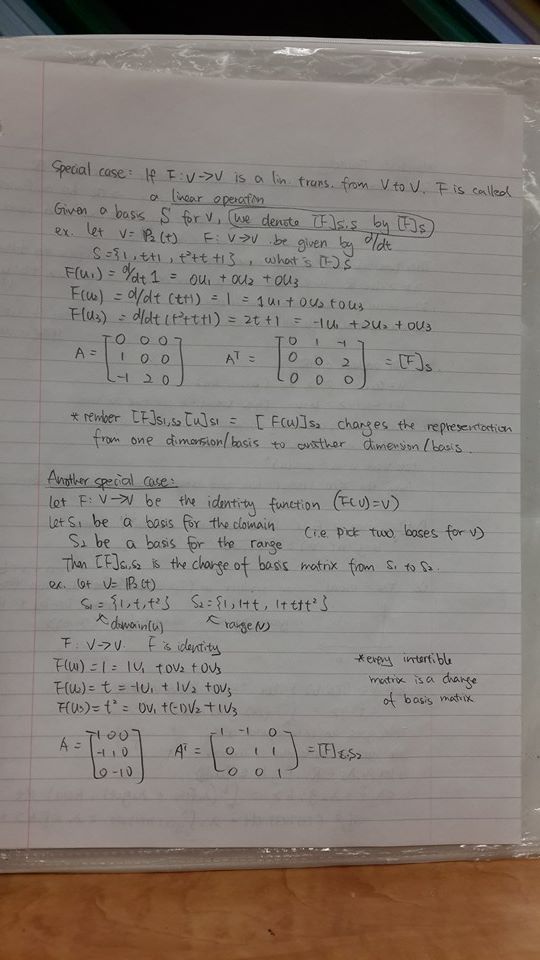 Special case: If F: V->V is a lin. trans. from V to V. F is called
a linear operation
Given a basis S for V, (we denote [F]s,s by [F]s)
ex. let V = P2(t) F: V->V be given by d/dt
S={1, t+1, t²+t+1}, what is [F]s
F(u1) = d/dt 1 = 0u1 + 0u2 + 0u3
F(u2) = d/dt (t+1) = 1 = 1u1 + 0u2 + 0u3
F(u3) = d/dt (t²+t+1) = 2t+1 = -1u1 + 2u2 + 0u3
0 0 0 0 1 -1
A = [1 0 0] Aᵀ = [0 0 2] = [F]s
-1 2 0 0 0 0
* rember [F]s1,s2 [u]s1 = [F(u)]s2 changes the representation
from one dimension/basis to another dimension/basis.
Another special case:
Let F: V->V be the identity function (F(v)=v)
Let S1 be a basis for the domain
S2 be a basis for the range (i.e. pick two bases for V)
Then [F]s1,s2 is the change of basis matrix from S1 to S2.
ex. let V = P2(t)
S1 = {1, t, t²} S2 = {1, 1+t, 1+t+t²}
domain(u) range(v)
F: V->V. F is identity
F(u1) = 1 = 1v1 + 0v2 + 0v3
F(u2) = t = -1v1 + 1v2 + 0v3
F(u3) = t² = 0v1 + (-1)v2 + 1v3
* every intertible
matrix is a change
of basis matrix
1 0 0 -1 -1 0
A = [-1 1 0] Aᵀ = [0 1 1] = [F]s1,s2
0 -1 0 0 0 1